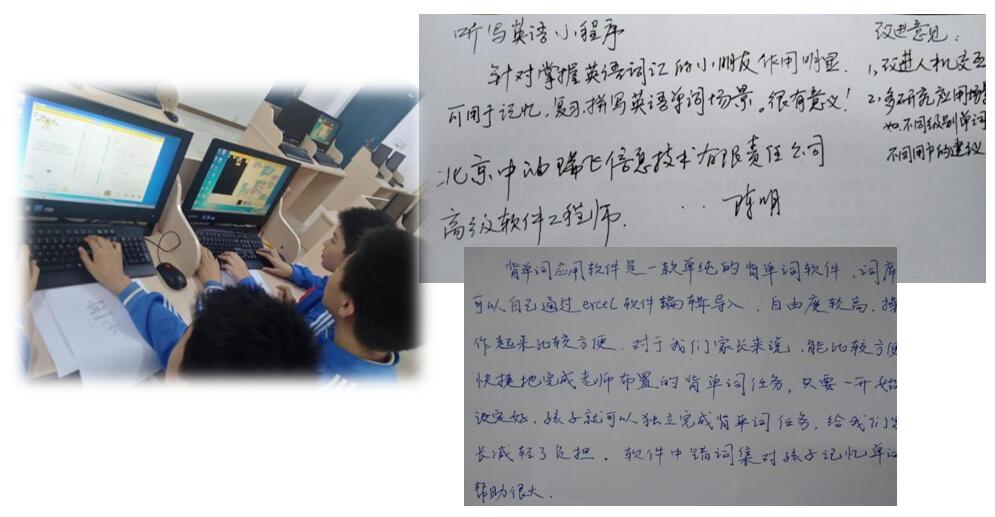 听写英语小程序
针对掌握英语词汇的小朋友作用明显.
可用于记忆,复习拼写英语单词场景。很有意义!
北京中油瑞飞信息技术有限责任公司
高级软件工程师.
改进意见:
1,改进人机交互
2.多研究应用场景
如.不同级别单词
不同用户的建议
背单词应用软件是一款单纯的背单词软件.词库
可以自己通过excel软件编辑导入.自由度较高.操
作起来比较方便.对于我们家长来说,能比较方便
快捷地完成老师布置的背单词任务,只要一开始
设定好,孩子就可以独立完成背单词任务,给我们家
长减轻了负担.软件中错词集对孩子记忆单词
帮助很大.